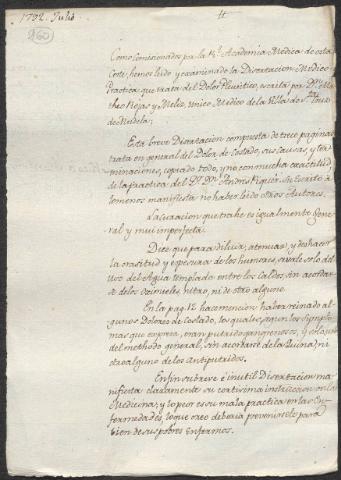 1792. Julio
4
260
Como comisionados por la Rl. Academia Medica de esta
Corte, hemos leido y examinado la Disertacion Medico
Practica que trata del Dolor Pleuritico, escrita por Dn. Ma
theo Rojas y Melez, unico Medico de la Villa de Sta. Cruz
de Mudela;
Esta breve Disertacion compuesta de trece paginas
trata en general del Dolor de Costado, sus causas, y ter
minaciones, copiado todo, y no con mucha exactitud
de la practica del Dr. Dn. Andres Piquer. Su Escrito a
lo menos manifiesta no haber leido otros Autores.
La curacion que trahe es igualmente gene
ral y mui imperfecta.
Dice que para diluir, atenuar, y deshacer
la crasitud y espesura de los humores, se vale solo del
uso del Agua templada entre los Caldos, sin acordar
se de los oximieles, nitro, ni de otro alguno.
En la pag. 12 hace mencion haber reinado al
gunos Dolores de Costado, los quales, segun los sympto
mas que expresa, eran putrido gangrenosos, y solo usó
del methodo general, sin acordarse de la Quina, ni
otro alguno de los antiputridos.
En fin su breve é inutil Disertacion ma
nifiesta claramente su cortisima instruccion en la
Medicina; y lo peor es su mala practica en las En
fermedades, lo que creo deberia prevenirsele para
bien de sus pobres Enfermos.